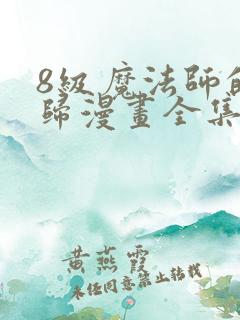 8級魔法師的
歸漫畫全集
黃燕霞
未經同意禁止轉載